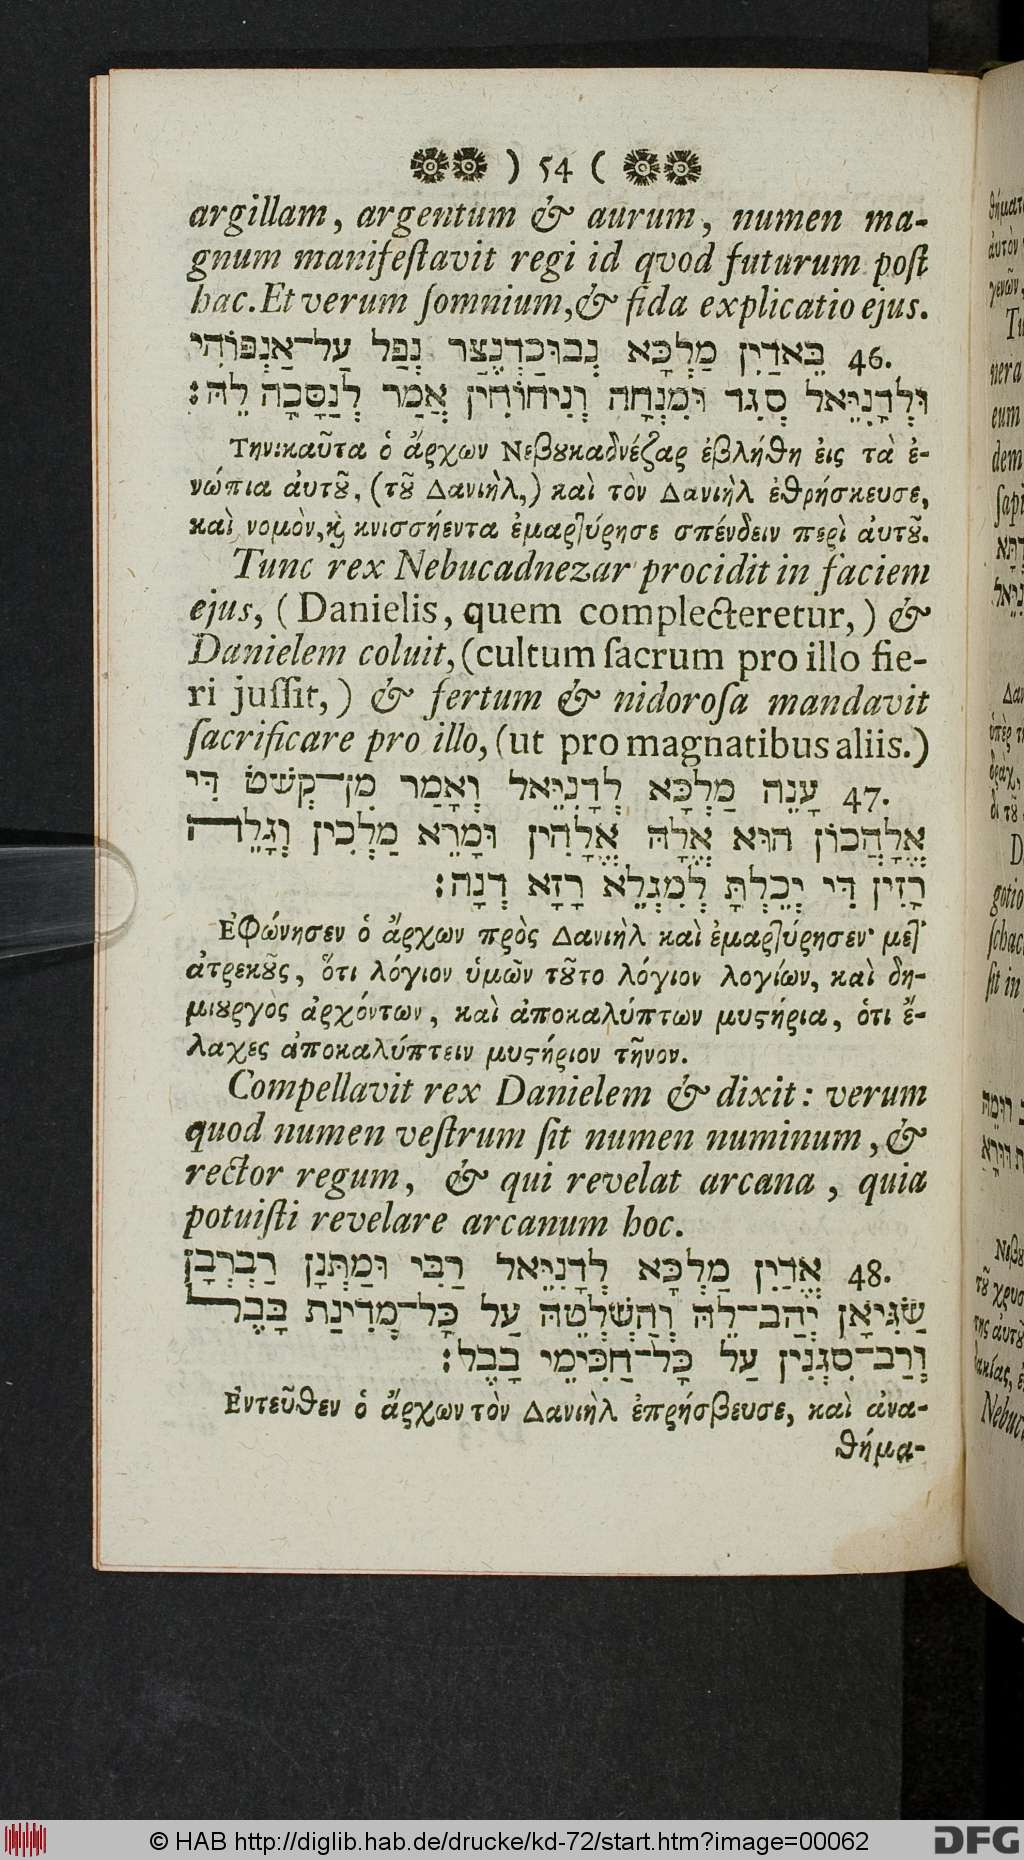 ) 54 (
argillam, argentum & aurum, numen ma-
gnum manifeſtavit regi id qvod futurum poſt
hac. Et verum ſomnium, & fida explicatio ejus.
46. בֵּאדַיִן מַלְכָּא נְבוּכַדְנֶצַּר נְפַל עַל־אַנְפּוֹהִי
וּלְדָנִיֵּאל סְגִד וּמִנְחָה וְנִיחוֹחִין אֲמַר לְנַסָּכָה לֵהּ׃
Τηνικαῦτα ὁ ἄρχων Νεβȣκαδνέζαρ ἐβλήθη ἐις τὰ ἐ-
νώπια ἀυτȣ͂, (τȣ͂ Δανιὴλ,) καὶ τὸν Δανιὴλ ἐθρήσκευσε,
καὶ νομὸν, κ̀ κνισσήεντα ἐμαρτύρησε σπένδειν περὶ ἀυτȣ͂.
Tunc rex Nebucadnezar procidit in faciem
ejus, (Danielis, quem complecteretur,) &
Danielem coluit, (cultum ſacrum pro illo fie-
ri juſſit,) & fertum & nidoroſa mandavit
ſacrificare pro illo, (ut pro magnatibus aliis.)
47. עָנֵה מַלְכָּא לְדָנִיֵּאל וְאָמַר מִן־קְשֹׁט דִּי
אֱלָהֲכוֹן הוּא אֱלָהּ אֱלָהִין וּמָרֵא מַלְכִין וְגָלֵה
רָזִין דִּי יְכֵלְתָּ לְמִגְלֵא רָזָא דְנָה׃
Ἐφώνησεν ὁ ἄρχων πρὸς Δανιὴλ καὶ ἐμαρτύρησεν· μετ'
ἀτρεκȣ͂ς, ὅτι λόγιον ὑμῶν τȣ͂το λόγιον λογίων, καὶ δη-
μιȣργὸς ἀρχόντων, καὶ ἀποκαλύπτων μυςήρια, ὁτι ἔ-
λαχες ἀποκαλύπτειν μυςήριον τῆνον.
Compellavit rex Danielem & dixit: verum
quod numen veſtrum ſit numen numinum, &
rector regum, & qui revelat arcana, quia
potuiſti revelare arcanum hoc.
48. אֱדַיִן מַלְכָּא לְדָנִיֵּאל רַבִּי וּמַתְּנָן רַבְרְבָן
שַׂגִּיאָן יְהַב־לֵהּ וְהַשְׁלְטֵהּ עַל כָּל־מְדִינַת בָּבֶל
וְרַב־סִגְנִין עַל כָּל־חַכִּימֵי בָבֶל׃
Ἐντεῦθεν ὁ ἄρχων τὸν Δανιὴλ ἐπρήσβευσε, καὶ ἀνα-
θήμα-
© HAB http://diglib.hab.de/drucke/kd-72/start.htm?image=00062
DFG